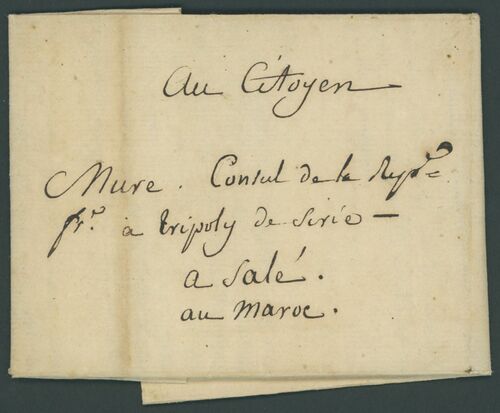 Au Citoyen
Mure. Consul de la Repe
fre à tripoly de Sirie —
a Salé.
au Maroc.